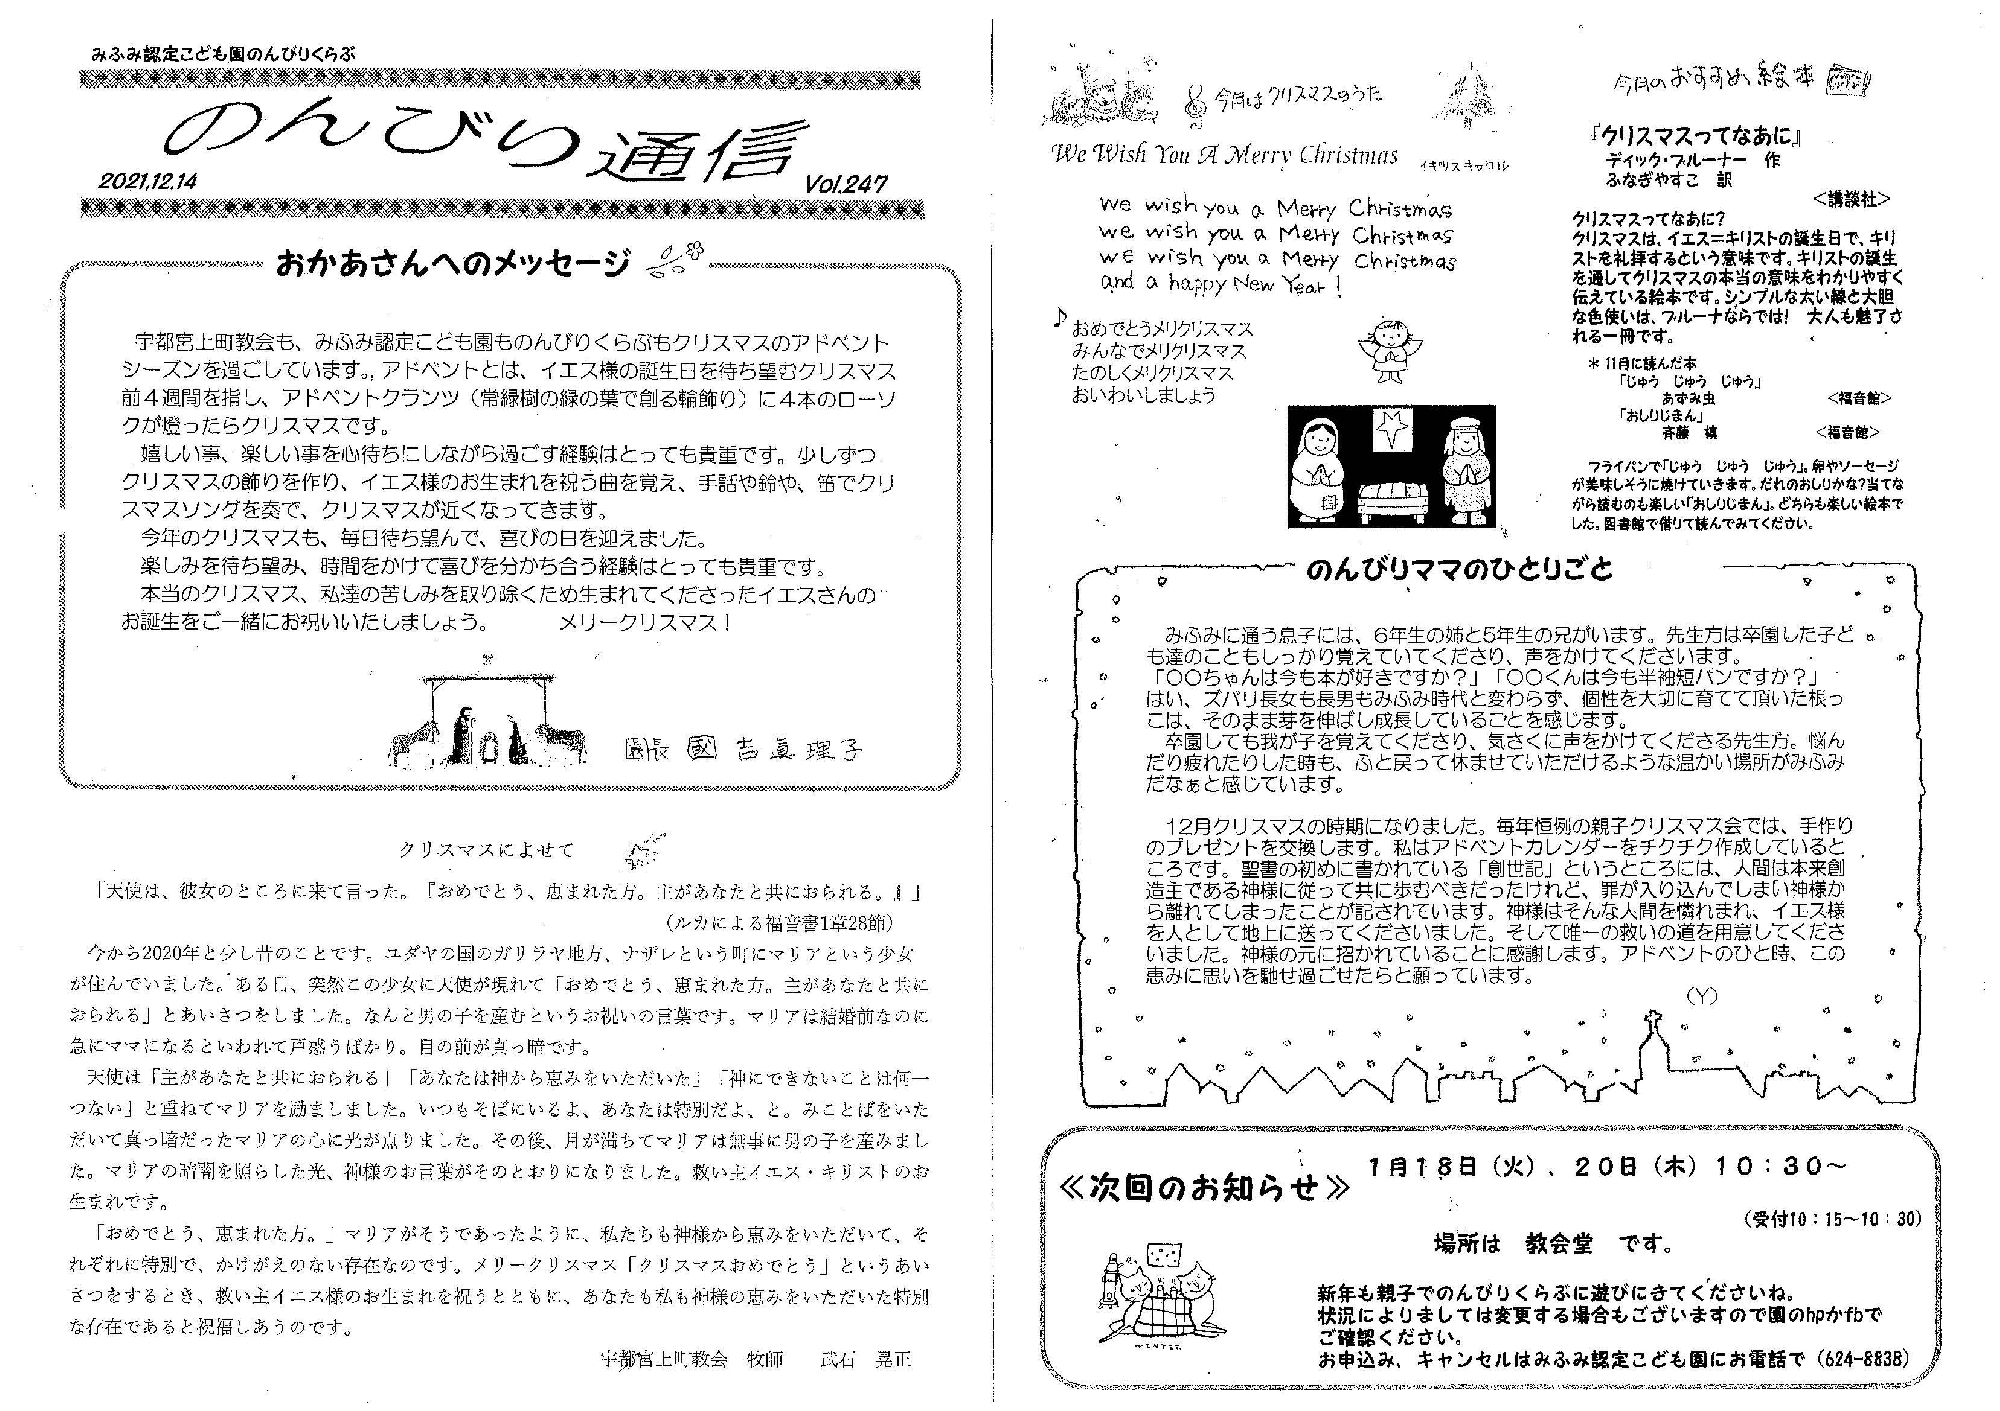 みふみ認定こども園のんびりくらぶ
のんびり通信
2021.12.14
Vol.247
おかあさんへのメッセージ
宇都宮上町教会も、みふみ認定こども園ものんびりくらぶもクリスマスのアドベント
シーズンを過ごしています。アドベントとは、イエス様の誕生日を待ち望むクリスマス
前４週間を指し、アドベントクランツ（常緑樹の緑の葉で創る輪飾り）に４本のローソ
クが燈ったらクリスマスです。
嬉しい事、楽しい事を心待ちにしながら過ごす経験はとっても貴重です。少しずつ
クリスマスの飾りを作り、イエス様のお生まれを祝う曲を覚え、手話や鈴や、笛でクリ
スマスソングを奏で、クリスマスが近くなってきます。
今年のクリスマスも、毎日待ち望んで、喜びの日を迎えました。
楽しみを待ち望み、時間をかけて喜びを分かち合う経験はとっても貴重です。
本当のクリスマス、私達の苦しみを取り除くため生まれてくださったイエスさんの
お誕生をご一緒にお祝いいたしましょう。　　　メリークリスマス！
園長 國吉眞理子
クリスマスによせて
「天使は、彼女のところに来て言った。『おめでとう、恵まれた方。主があなたと共におられる。』」
（ルカによる福音書1章28節）
今から2020年と少し昔のことです。ユダヤの国のガリラヤ地方、ナザレという町にマリアという少女
が住んでいました。ある日、突然この少女に天使が現れて「おめでとう、恵まれた方。主があなたと共に
おられる」とあいさつをしました。なんと男の子を産むというお祝いの言葉です。マリアは結婚前なのに
急にママになるといわれて戸惑うばかり。目の前が真っ暗です。
天使は「主があなたと共におられる」「あなたは神から恵みをいただいた」「神にできないことは何一
つない」と重ねてマリアを励ましました。いつもそばにいるよ、あなたは特別だよ、と。みことばをいた
だいて真っ暗だったマリアの心に光が点りました。その後、月が満ちてマリアは無事に男の子を産みまし
た。マリアの暗闇を照らした光、神様のお言葉がそのとおりになりました。救い主イエス・キリストのお
生まれです。
「おめでとう、恵まれた方。」マリアがそうであったように、私たちも神様から恵みをいただいて、そ
れぞれに特別で、かけがえのない存在なのです。メリークリスマス「クリスマスおめでとう」というあい
さつをするとき、救い主イエス様のお生まれを祝うとともに、あなたも私も神様の恵みをいただいた特別
な存在であると祝福しあうのです。
宇都宮上町教会　牧師　武石　晃正
今月はクリスマスのうた
We Wish You A Merry Christmas
イギリスキャロル
we wish you a Merry Christmas
we wish you a Merry Christmas
we wish you a Merry Christmas
and a happy New Year!
♪おめでとうメリクリスマス
みんなでメリクリスマス
たのしくメリクリスマス
おいわいしましょう
今月のおすすめ絵本
『クリスマスってなあに』
ディック・ブルーナー　作
ふなざやすこ　訳
＜講談社＞
クリスマスってなあに？
クリスマスは、イエス＝キリストの誕生日で、キリ
ストを礼拝するという意味です。キリストの誕生
を通してクリスマスの本当の意味をわかりやすく
伝えている絵本です。シンプルな太い線と大胆
な色使いは、ブルーナならでは！　大人も魅了さ
れる一冊です。
＊11月に読んだ本
「じゅう　じゅう　じゅう」
あずみ虫　＜福音館＞
「おしりじまん」
斉藤　槙　＜福音館＞
フライパンで「じゅう　じゅう　じゅう」。卵やソーセージ
が美味しそうに焼けていきます。だれのおしりかな？当てな
がら読むのも楽しい「おしりじまん」。どちらも楽しい絵本で
した。図書館で借りて読んでみてください。
のんびりママのひとりごと
みふみに通う息子には、6年生の姉と5年生の兄がいます。先生方は卒園した子ど
も達のこともしっかり覚えていてくださり、声をかけてくださいます。
「〇〇ちゃんは今も本が好きですか？」「〇〇くんは今も半袖短パンですか？」
はい、ズバリ長女も長男もみふみ時代と変わらず、個性を大切に育てて頂いた根っ
こは、そのまま芽を伸ばし成長していることを感じます。
卒園しても我が子を覚えてくださり、気さくに声をかけてくださる先生方。悩ん
だり疲れたりした時も、ふと戻って休ませていただけるような温かい場所がみふみ
だなぁと感じています。
12月クリスマスの時期になりました。毎年恒例の親子クリスマス会では、手作り
のプレゼントを交換します。私はアドベントカレンダーをチクチク作成していると
ころです。聖書の初めに書かれている「創世記」というところには、人間は本来創
造主である神様に従って共に歩むべきだったけれど、罪が入り込んでしまい神様か
ら離れてしまったことが記されています。神様はそんな人間を憐れまれ、イエス様
を人として地上に送ってくださいました。そして唯一の救いの道を用意してくださ
いました。神様の元に招かれていることに感謝します。アドベントのひと時、この
恵みに思いを馳せ過ごせたらと願っています。
（Y）
≪次回のお知らせ≫
１月１８日（火）、２０日（木）１０：３０～
（受付10：15～10：30）
場所は　教会堂　です。
新年も親子でのんびりくらぶに遊びにきてくださいね。
状況によりましては変更する場合もございますので園のhpかfbで
ご確認ください。
お申込み、キャンセルはみふみ認定こども園にお電話で（624-8838）
WINTER